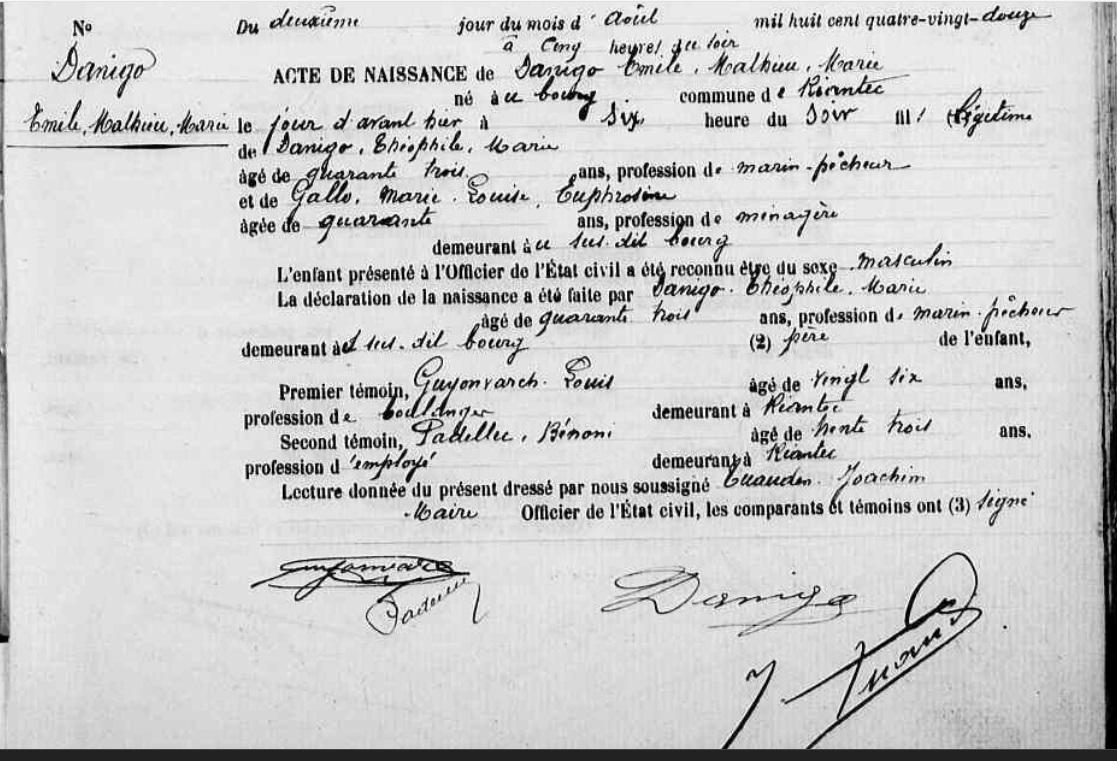 Nº
Danigo
Emile, Mathieu, Marie
Du deuxième jour du mois d' Août mil huit cent quatre-vingt-douze
à Cinq heures du soir
ACTE DE NAISSANCE de Danigo Emile, Mathieu, Marie
né au bourg commune de Riantec
le jour d'avant hier à Six heure du Soir fils légitime
de Danigo, Théophile, Marie
âgé de quarante trois ans, profession de marin-pêcheur
et de Gallo, Marie-Louise, Euphrosine
âgée de quarante ans, profession de ménagère
demeurant au sus-dit bourg
L'enfant présenté à l'Officier de l'État civil a été reconnu être du sexe masculin
La déclaration de la naissance a été faite par Danigo Théophile, Marie
âgé de quarante trois ans, profession de marin-pêcheur
demeurant au sus-dit bourg (2) père de l'enfant,
Premier témoin, Guyonvarch Louis âgé de vingt six ans,
profession de boulanger demeurant à Riantec
Second témoin, Padellec, Bénoni âgé de trente trois ans.
profession d'employé demeurant à Riantec
Lecture donnée du présent dressé par nous soussigné Joachim
Maire Officier de l'État civil, les comparants et témoins ont (3) signé
Danigo